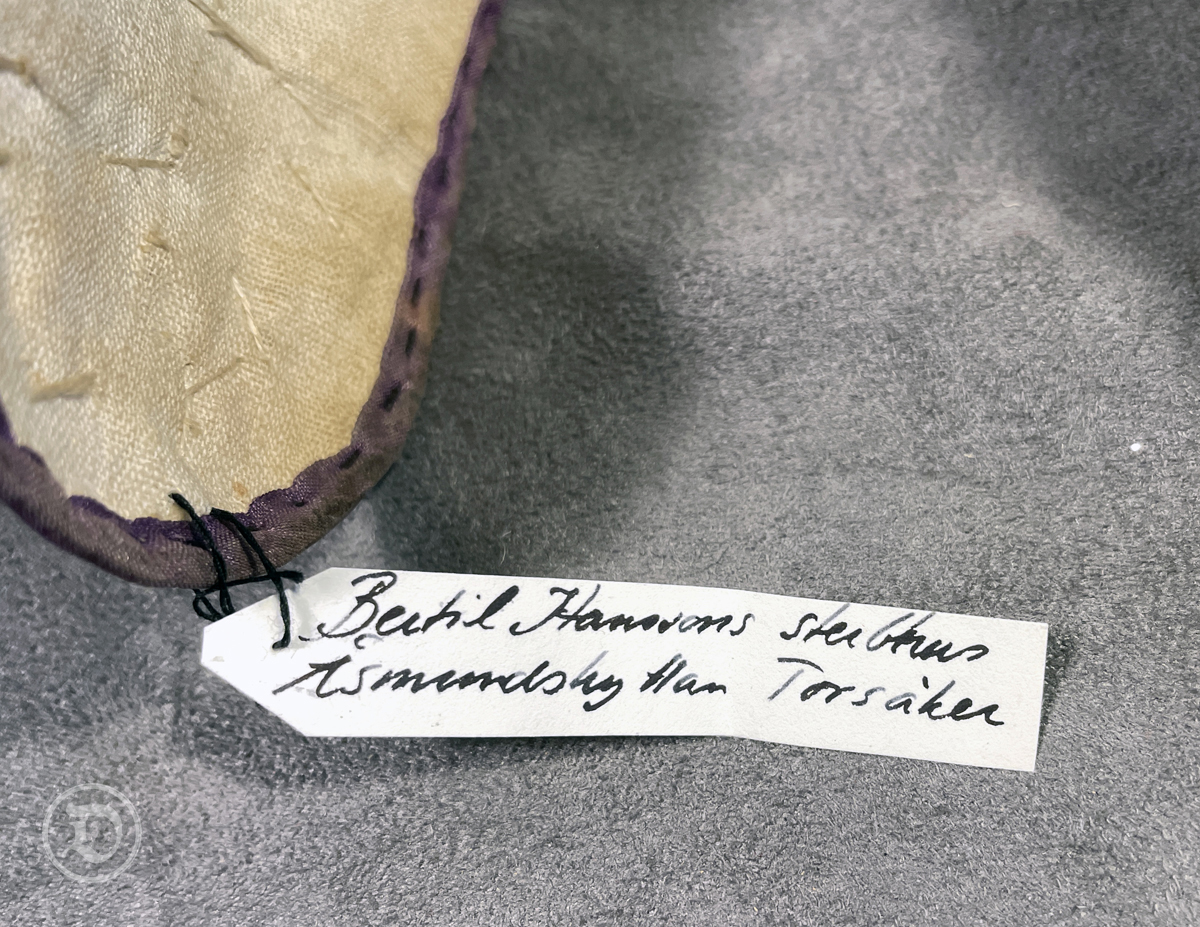 Bertil Hanssons sterbhus
Åsmundshyttan Torsåker